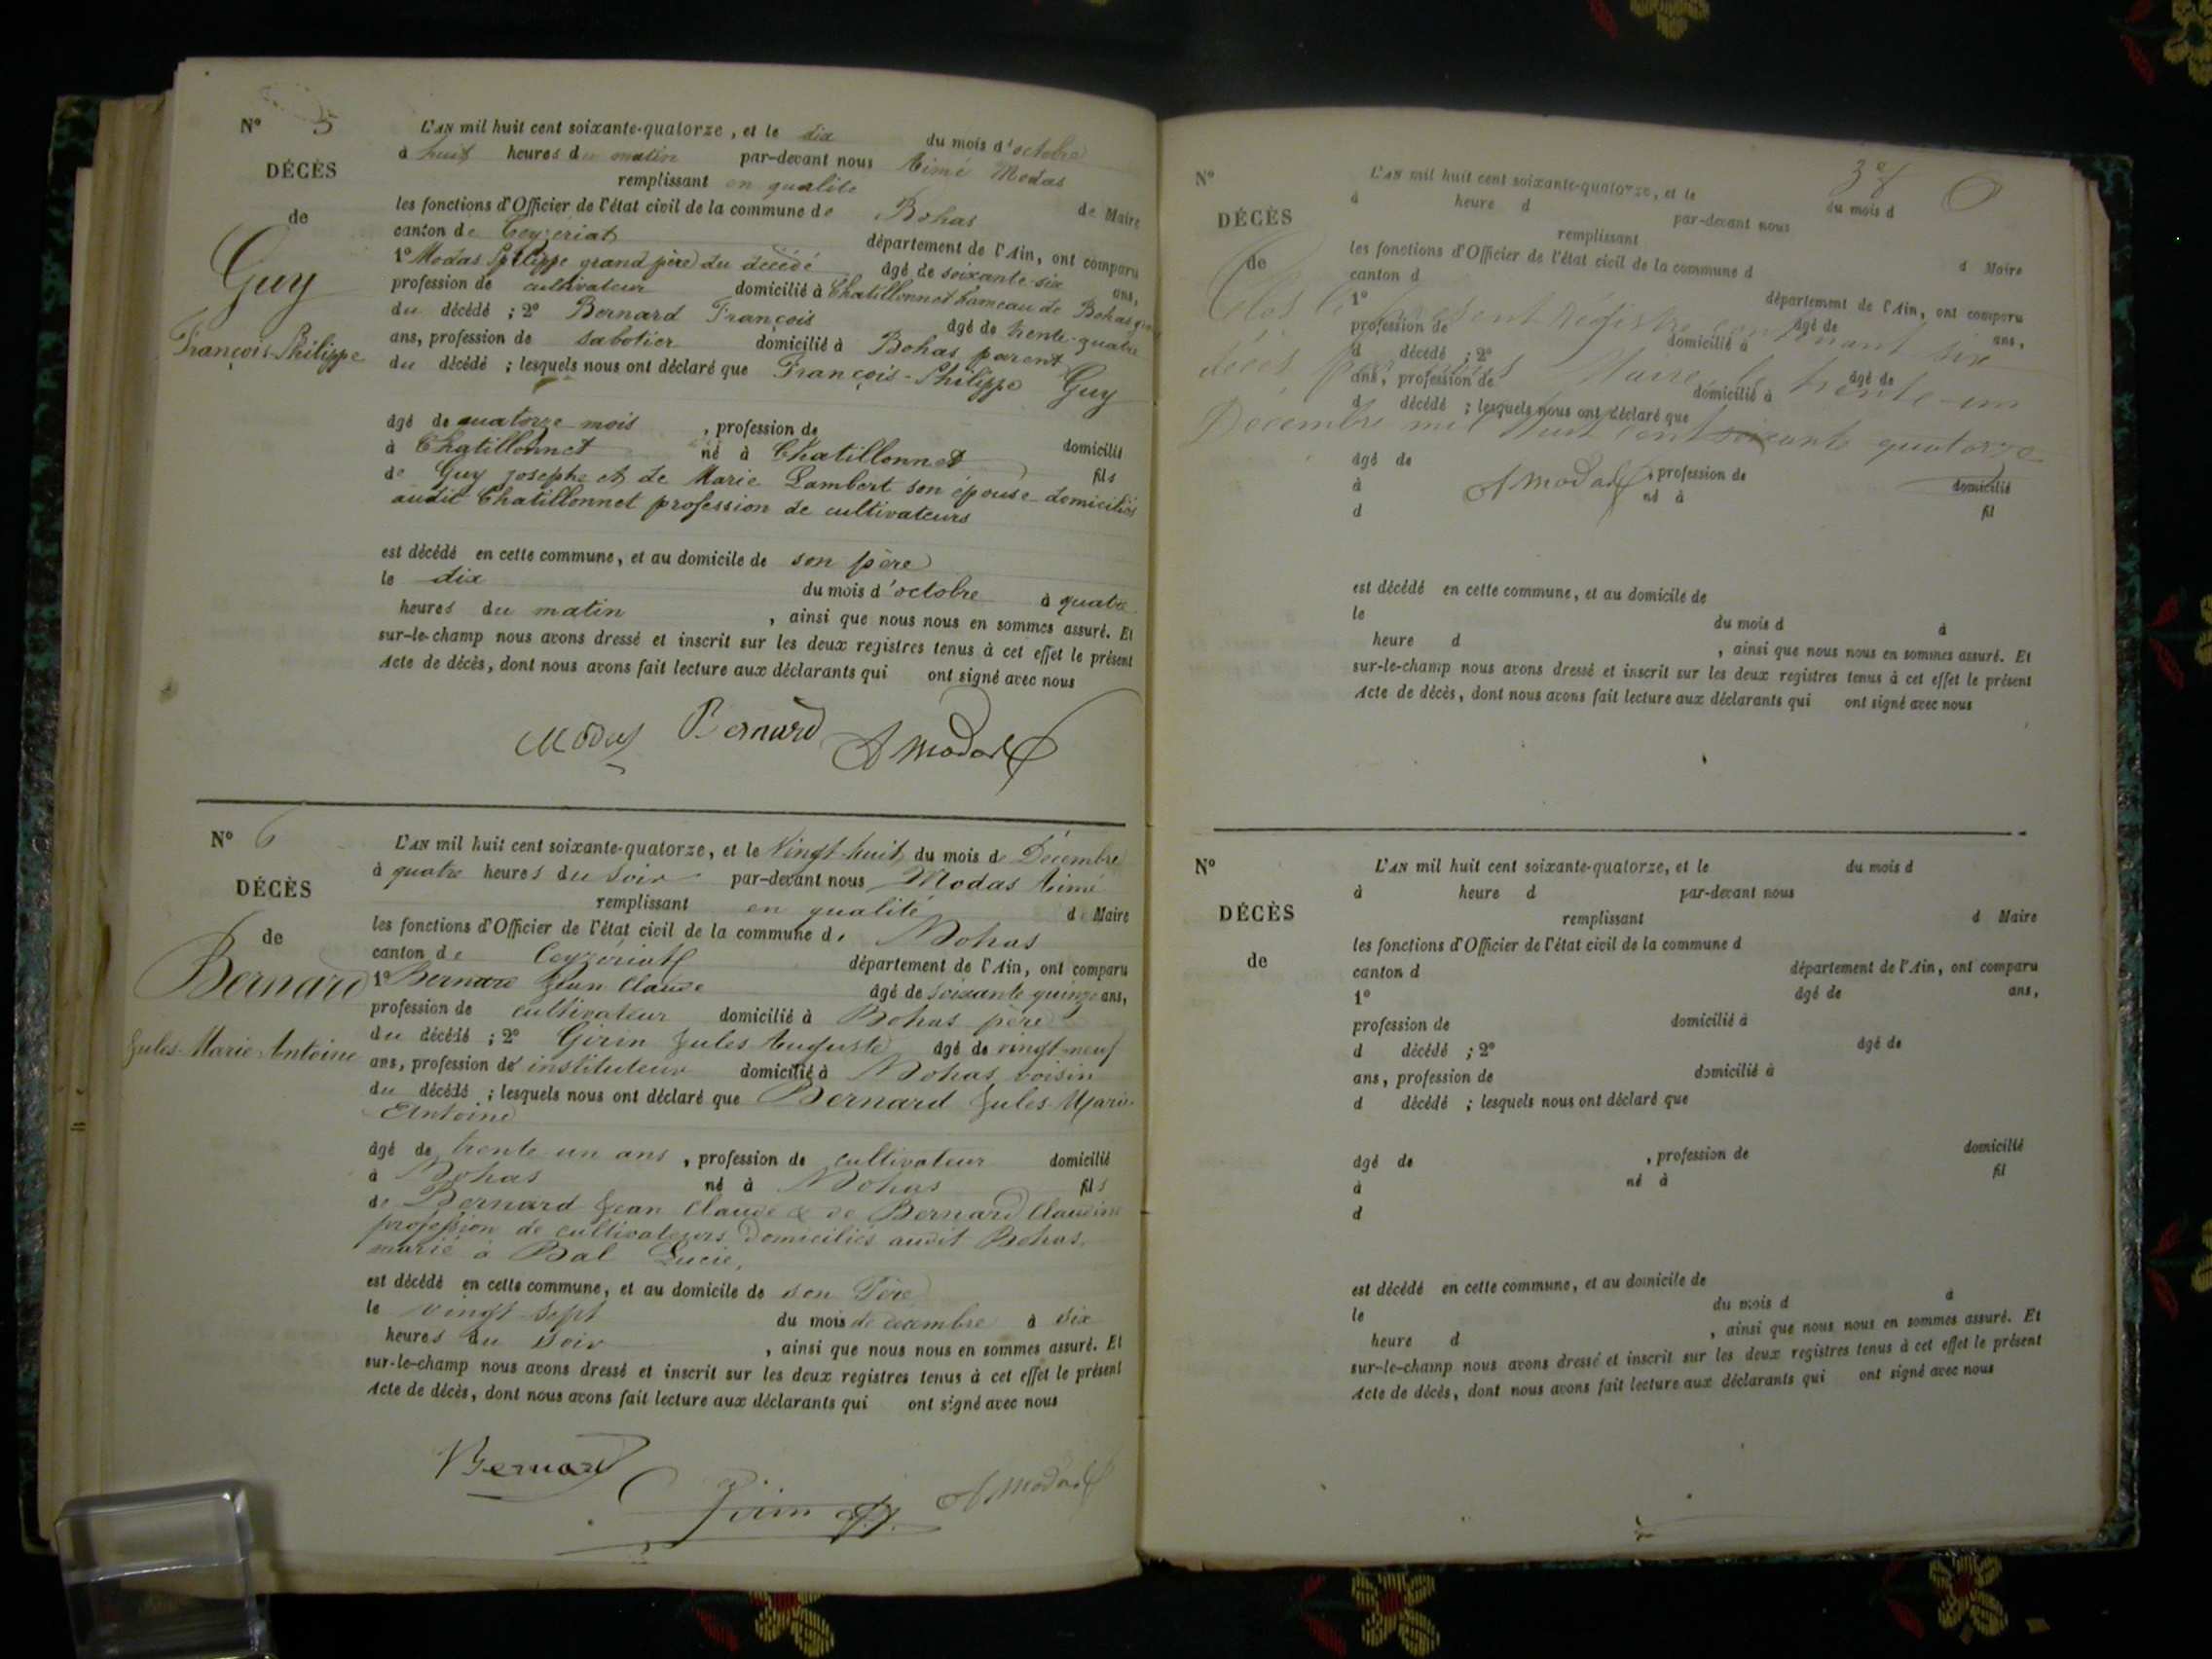 N° 5
DÉCÈS
de
Guy
François-Philippe
L'AN mil huit cent soixante-quatorze, et le dix du mois d'octobre
à huit heures du matin par-devant nous Aimé Modas
remplissant en qualité de Maire
les fonctions d'Officier de l'état civil de la commune de Bohas
canton de Ceyzeriat département de l'Ain, ont comparu
1° Modas Philippe grand père du décédé âgé de soixante-six ans,
profession de cultivateur domicilié à Chatillonnet hameau de Bohas
du décédé ; 2° Bernard François âgé de trente-quatre
ans, profession de sabotier domicilié à Bohas parent
du décédé ; lesquels nous ont déclaré que François-Philippe Guy
âgé de quatorze mois , profession de domicilié
à Chatillonnet né à Chatillonnet fils
de Guy josephe et de Marie Lambert son épouse domiciliés
audit Chatillonnet profession de cultivateurs
est décédé en cette commune, et au domicile de son père
le dix du mois d'octobre à quatre
heures du matin , ainsi que nous nous en sommes assuré. Et
sur-le-champ nous avons dressé et inscrit sur les deux registres tenus à cet effet le présent
Acte de décès, dont nous avons fait lecture aux déclarants qui ont signé avec nous
Modas Bernard A Modas
N° 6
DÉCÈS
de
Bernard
Jules Marie Antoine
L'AN mil huit cent soixante-quatorze, et le Vingt-huit du mois de Décembre
à quatre heures du soir par-devant nous Modas Aimé
remplissant en qualité de Maire
les fonctions d'Officier de l'état civil de la commune de Bohas
canton de Ceyzériat département de l'Ain, ont comparu
1° Bernard Jean Claude âgé de soixante quinze ans,
profession de cultivateur domicilié à Bohas père
du décédé ; 2° Girin Jules Auguste âgé de vingt-neuf
ans, profession de instituteur domicilié à Bohas voisin
du décédé ; lesquels nous ont déclaré que Bernard Jules Marie
Antoine
âgé de trente un ans , profession de cultivateur domicilié
à Bohas né à Bohas fils
de Bernard Jean Claude & de Bernard Claudine
profession de cultivateurs domiciliés audit Bohas.
marié à Bal Lucie,
est décédé en cette commune, et au domicile de son Père
le vingt sept du mois de décembre à dix
heures du soir , ainsi que nous nous en sommes assuré. Et
sur-le-champ nous avons dressé et inscrit sur les deux registres tenus à cet effet le présent
Acte de décès, dont nous avons fait lecture aux déclarants qui ont signé avec nous
Bernard
Girin A Modas
N°
DÉCÈS
de
L'AN mil huit cent soixante-quatorze, et le du mois d
à heure d par-devant nous
remplissant d Maire
les fonctions d'Officier de l'état civil de la commune d
canton d département de l'Ain, ont comparu
1° âgé de ans,
profession de domicilié à
d décédé ; 2° âgé de
ans, profession de domicilié à
d décédé ; lesquels nous ont déclaré que
Clos le présent Régistre contenant six
décès par nous Maire, le trente-un
Décembre mil huit cent soixante quatorze
A Modas
âgé de , profession de domicilié
à né à fil
d
est décédé en cette commune, et au domicile de
le du mois d à
heure d , ainsi que nous nous en sommes assuré. Et
sur-le-champ nous avons dressé et inscrit sur les deux registres tenus à cet effet le présent
Acte de décès, dont nous avons fait lecture aux déclarants qui ont signé avec nous
N°
DÉCÈS
de
L'AN mil huit cent soixante-quatorze, et le du mois d
à heure d par-devant nous
remplissant d Maire
les fonctions d'Officier de l'état civil de la commune d
canton d département de l'Ain, ont comparu
1° âgé de ans,
profession de domicilié à
d décédé ; 2° âgé de
ans, profession de domicilié à
d décédé ; lesquels nous ont déclaré que
âgé de , profession de domicilié
à né à fil
d
est décédé en cette commune, et au domicile de
le du mois d à
heure d , ainsi que nous nous en sommes assuré. Et
sur-le-champ nous avons dressé et inscrit sur les deux registres tenus à cet effet le présent
Acte de décès, dont nous avons fait lecture aux déclarants qui ont signé avec nous